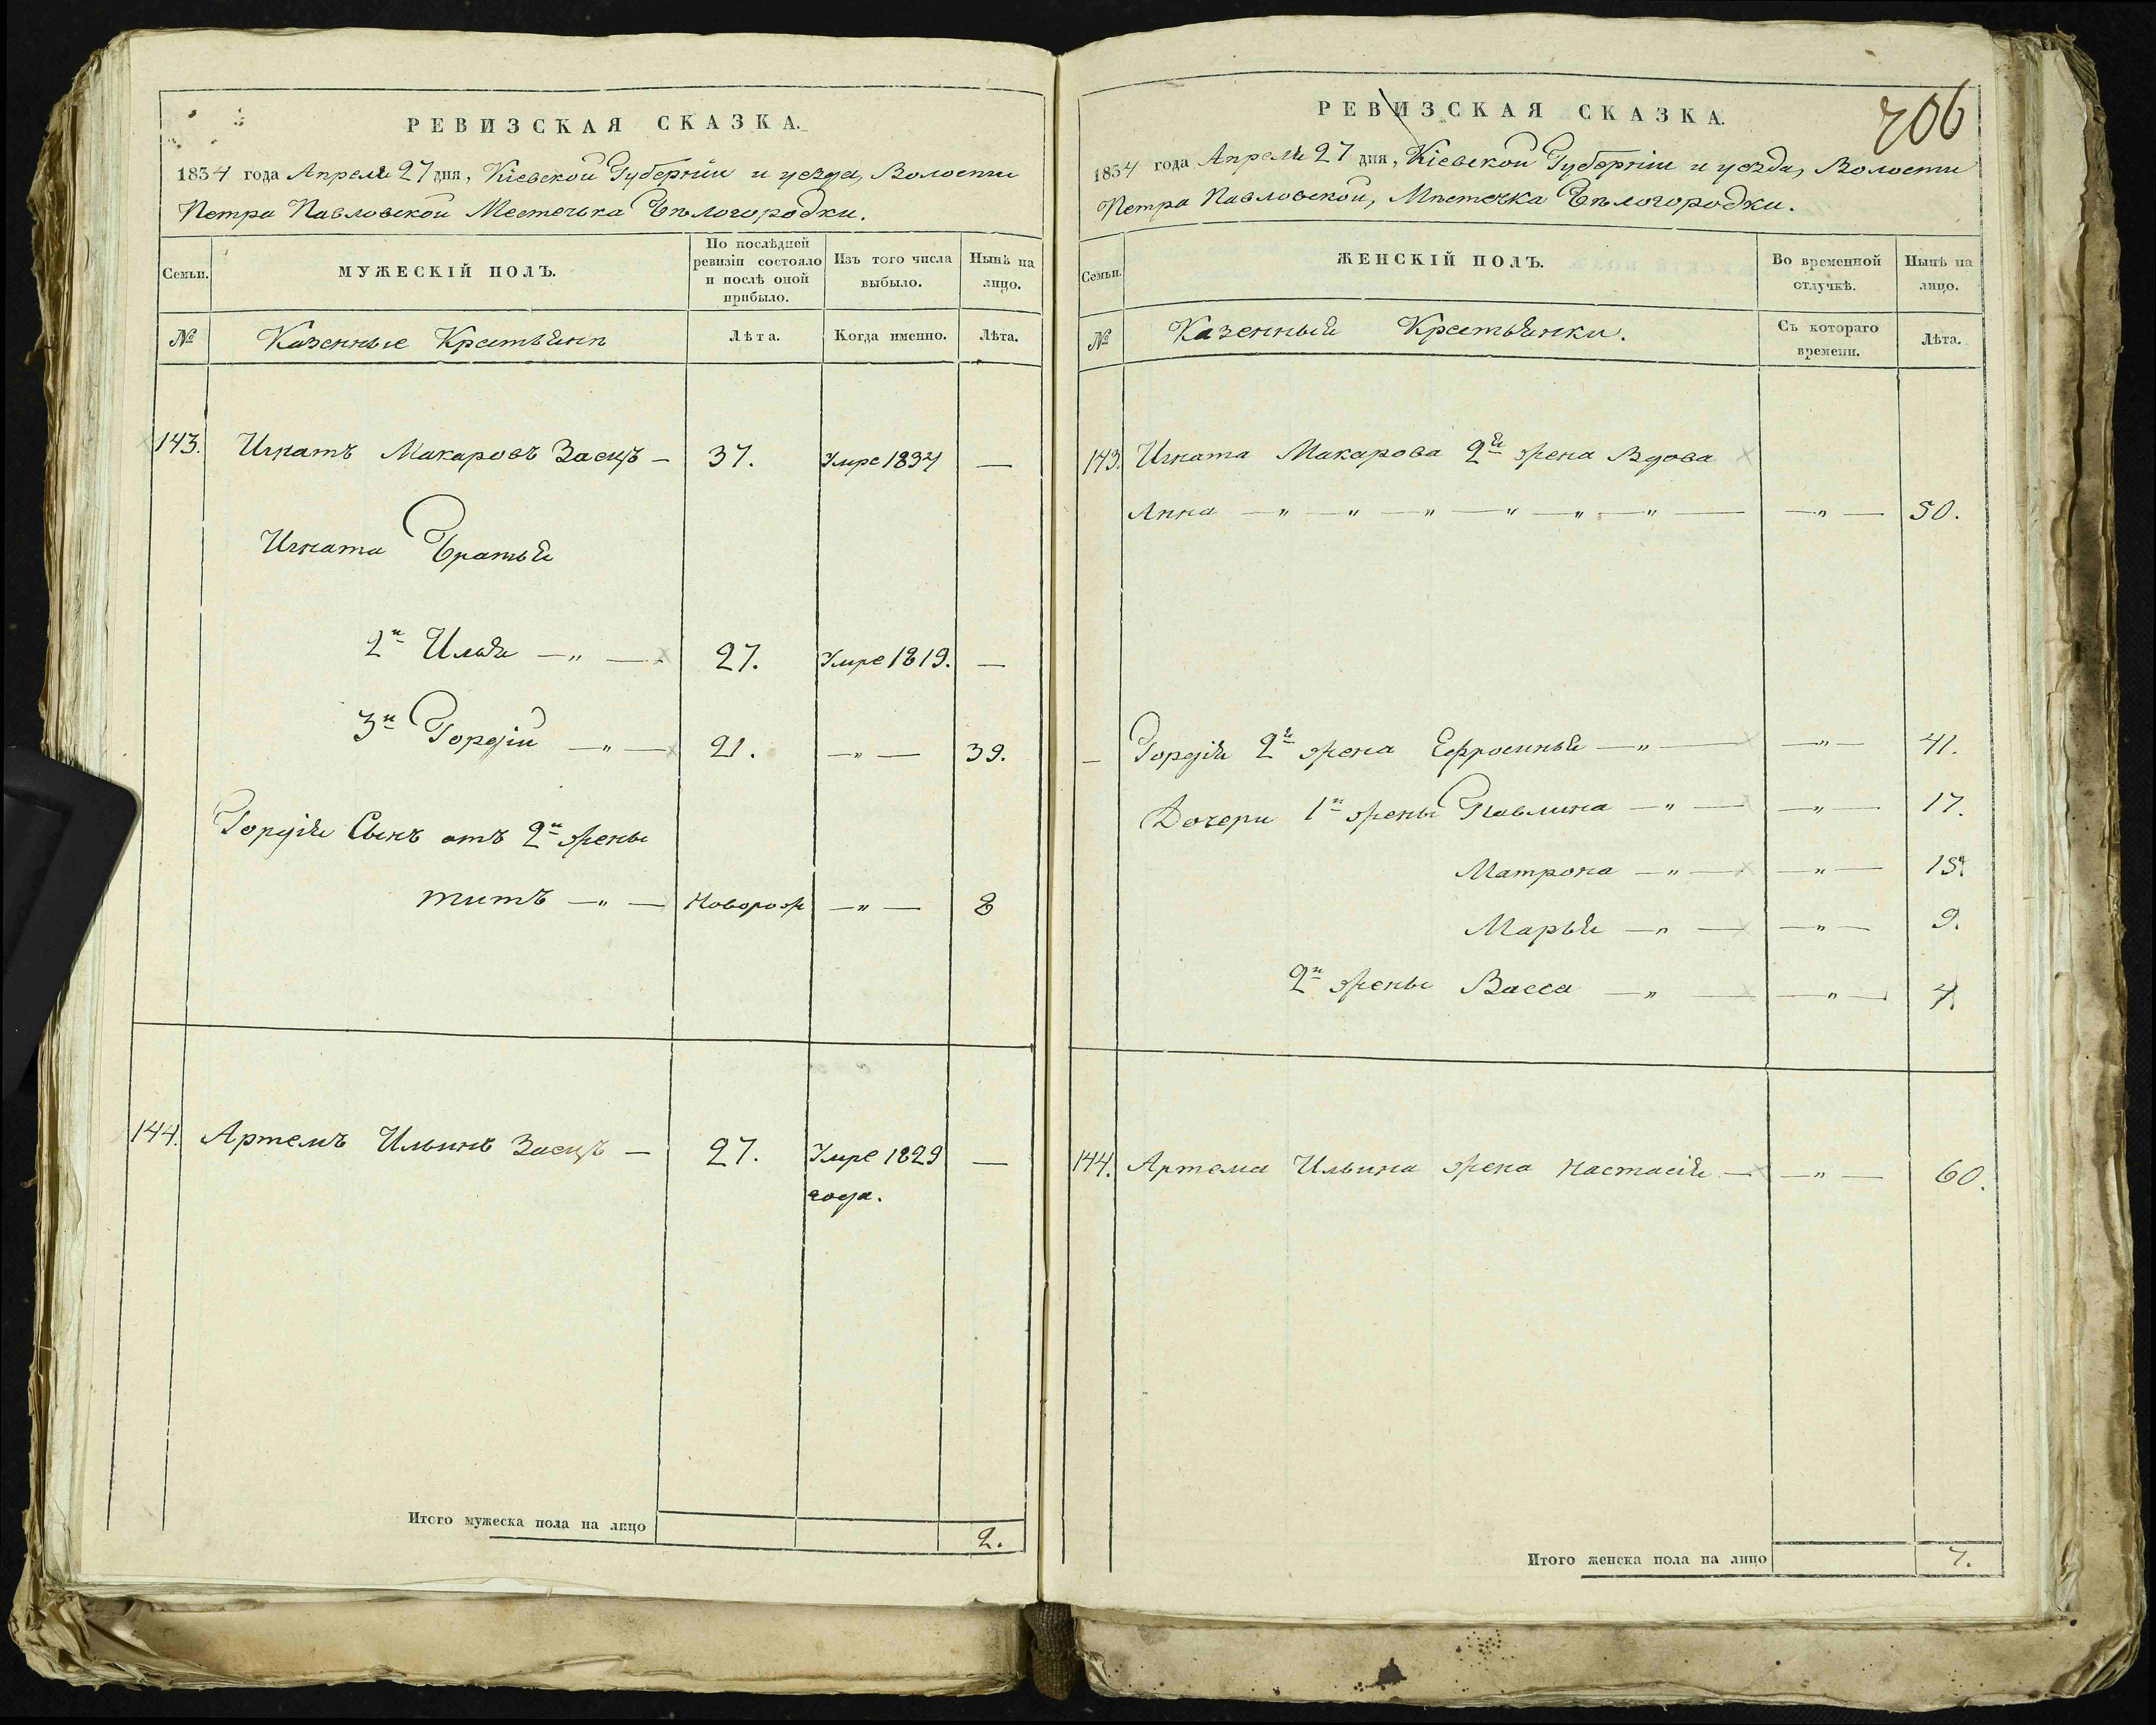 РЕВИЗСКАЯ СКАЗКА.
1834 года Апреля 27 дня, Кіевской Губерніи и уезда, Волости
Петра Павловской Местечька Бѣлогородки.
Семьи.
МУЖЕСКІЙ ПОЛЪ.
По послѣдней
ревизіи состояло
и послѣ оной
прибыло.
Изъ того числа
выбыло.
Нынѣ на
лицо.
№
Казенные Крестьянѣ
Лѣта.
Когда именно.
Лѣта.
143. Игнатъ Макаровъ Заецъ — 37. Умре 1834 —
Игната Братья
2й Илья — " — 27. Умре 1819. —
3й Гордій — " — 21. — " — 39.
Гордія Сынъ отъ 2й жены
Титъ — " — Новорож — " — 8
144. Артемъ Ильинъ Заецъ — 27. Умре 1829 —
года.
Итого мужеска пола на лицо 2.
706
РЕВИЗСКАЯ СКАЗКА.
1834 года Апреля 27 дня, Кіевской Губерніи и уезда, Волости
Петра Павловской, Мѣстечка Бѣлогородки.
Семьи.
ЖЕНСКІЙ ПОЛЪ.
Во временной
отлучкѣ.
Нынѣ на
лицо.
№
Казенныя Крестьянки.
Съ котораго
времени.
Лѣта.
143. Игната Макарова 2я жена Вдова
Анна — " — " — " — " — " — " — — " — 50.
— Гордія 2я жена Ефросинья — " — — " — 41.
Дочери 1й жены Павлина — " — — " — 17.
Матрона — " — — " — 15.
Марья — " — — " — 9.
2й жены Васса — " — — " — 4.
144. Артема Ильина жена Настасія — — " — 60.
Итого женска пола на лицо 7.